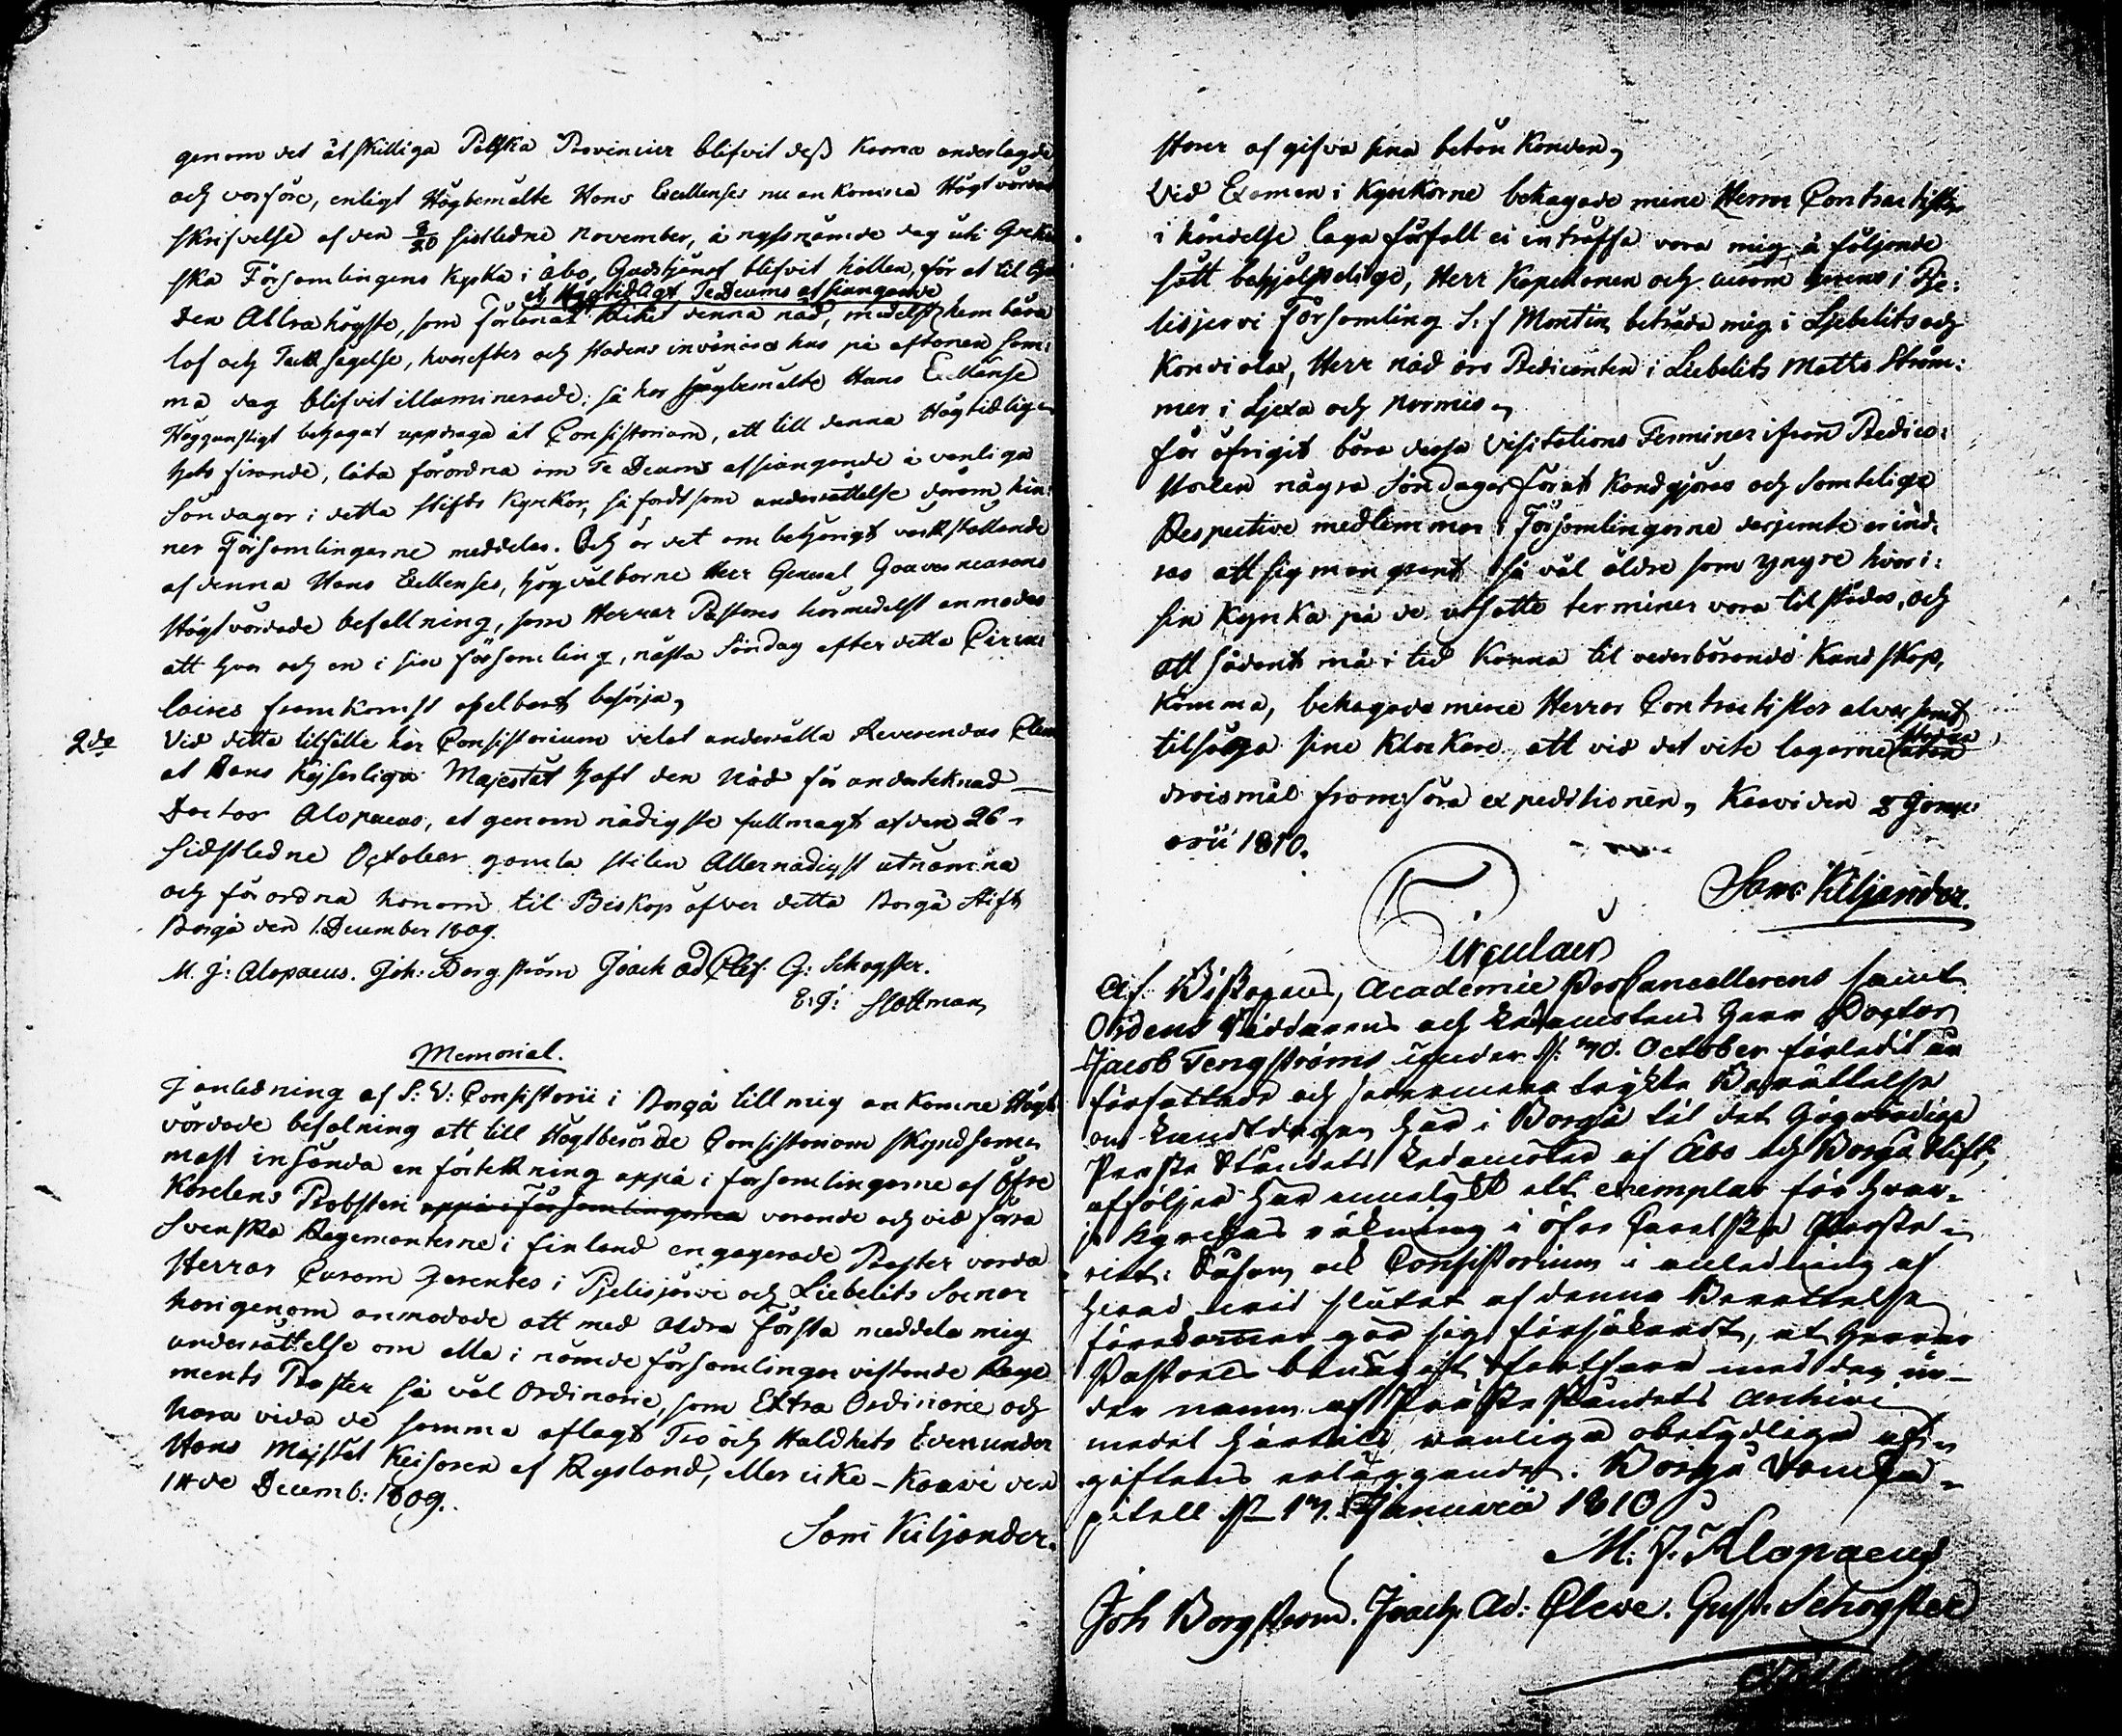 genom det åtskilliga Pålska Provincier blifvit dess krona underlagde
och varföre, enligt Högbemälte Hans Excellences nu ankomna Högtvörda
skrifvelse af den 8/20 sistledne November, å nyssnämde dag uti Greki
ska Församlingens kyrka i Åbo, Gudstjenst blifvit hållen, för at til Gud
et Högtidligt Te Deums afsjungande
den Allrahögste, som förlenat Riket denna nåd, medelst hembära
lof och Tacksägelse, hvarefter och stadens invånares hus på aftonen sam:
ma dag blifvit illuminerade; så har högbemälte Hans Excellense
Höggunstigt behagat uppdraga åt Consistorium, att till denna Högtidlig-
hets firande, låta förordna om Te Deums afsjungande å vanliga
Söndagar i detta stifts Kyrkor, så fordt som underrättelse därom hin-
ner Församlingarne meddelas. Och är det om behörigt verkställande
af denna Hans Excellenses, högvälborne Herr General Gouverneurens
Högtvördade befallning, som Herrar Pastores härmedelst anmodas
att hvar och en i sin församling, nästa Söndag efter detta Circu
laires framkomst ofelbart besörja,
2do Vid detta tilfälle har Consistorium velat underrätta Reverendus Clerus
at Hans Kejserliga Majestät haft den Nåd för undertecknad
Doctor Alopaeus, at genom nådigste fullmagt af den 26
Sidstledne October gamla stilen Allernådigst utnämna
och förordna honom til Biskop öfver detta Borgå Stift
Borgå den 1. December 1809.
M. J: Alopaeus. Joh: Borgström Joach ad Clef. G: Schogster.
E. J: Slottman
Memorial.
I anledning af S: V: Consistorii i Borgå till mig ankomne Högt
vördade befalning att till Högtberörde Consistorium skyndsam
mast insända en förtekning oppå i församlingarne af Öfre
Karelens Probsteri oppå i Församlingarna varande och vid förra
Svenska Regementerne i Finland engagerade Prester varda
Herrar Curam gerentes i Pielisjärvi och Liebelits Socnar
harigenom anmodade att med aldra första meddela mig
underrättelse om alla i nämde församlingar vistande Rege
ments Prester så väl Ordinarie, som Extra Ordinarie och
hara vida de samma aflagt Tro och Huldhets Eden under
Hans Majstät Keisaren af Rysland, eller icke - Kaavi den
14de Decemb: 1809.
Sam Kiljander.
storer afgifva sina betänkanden,
Vid Examen i Kyrkorne behagade mine Herrar Contractister
i händelse laga förfall ei inträffa vara mig å följande
sätt behjelpelige, Herr Kapellanen och curam gerens i Pie:
lisjervi Församling S: f Montin biträda mig i Liebelits och
Kondiolax, Herr nåd års Predicanten i Liebelits Maths Ström:
mer i Ljexa och Nurmis,
för öfrigit böra dessa Visitations Terminer ifron Predico:
stolen några Söndagar förut kundgjöras och samtelige
Respective medlemmar i Församlingarne derjemte erind:
ras att sig mangrant så väl äldre som yngre hvar i:
sin Kyrka på de utsatte terminer vara tilstädes, och
att sådant må i tid kunna til vederbörande kundskap,
komma, behagade mine Herrar Contractister alvarsamt
tilsäga sine Klockare att vid det vite lagarne utan
droismål framföra expeditionen, Kaavi den 8 Janu-
arii 1810.
Sam: Kiljander.
Circulair
Af Biskopens, Academie ProCancellerens samt
Ordens Riddarens och Ledamotens Herr Doctor
Jacob Tengströms under d: 10. October förledit år
författade och sedermera trykte Berättelse
om Landtdagen här i Borgå til det Högvördiga
Preste Ståndets Ledamöter af Åbo och Borgå Stift,
afföljer här ett exemplar för hvar-
je Kyrckas räkning i öfre Carelska Proste-
riet: Såsom ock Consistorium i anledning af
hvad vid slutet af denna Berättelse
förekommer gör sig försäkradt, at Herrar
Pastores benäget fortfara med den un-
der namn af Preste Ståndets Archivi
medel härtils vanliga obetydliga af-
giftens erläggande. Borgå DomCa-
pitell d. 17. Januarii 1810
M: J. Alopaeus
Joh Borgström. Joach. Ad: Cleve. Gust: Schogster